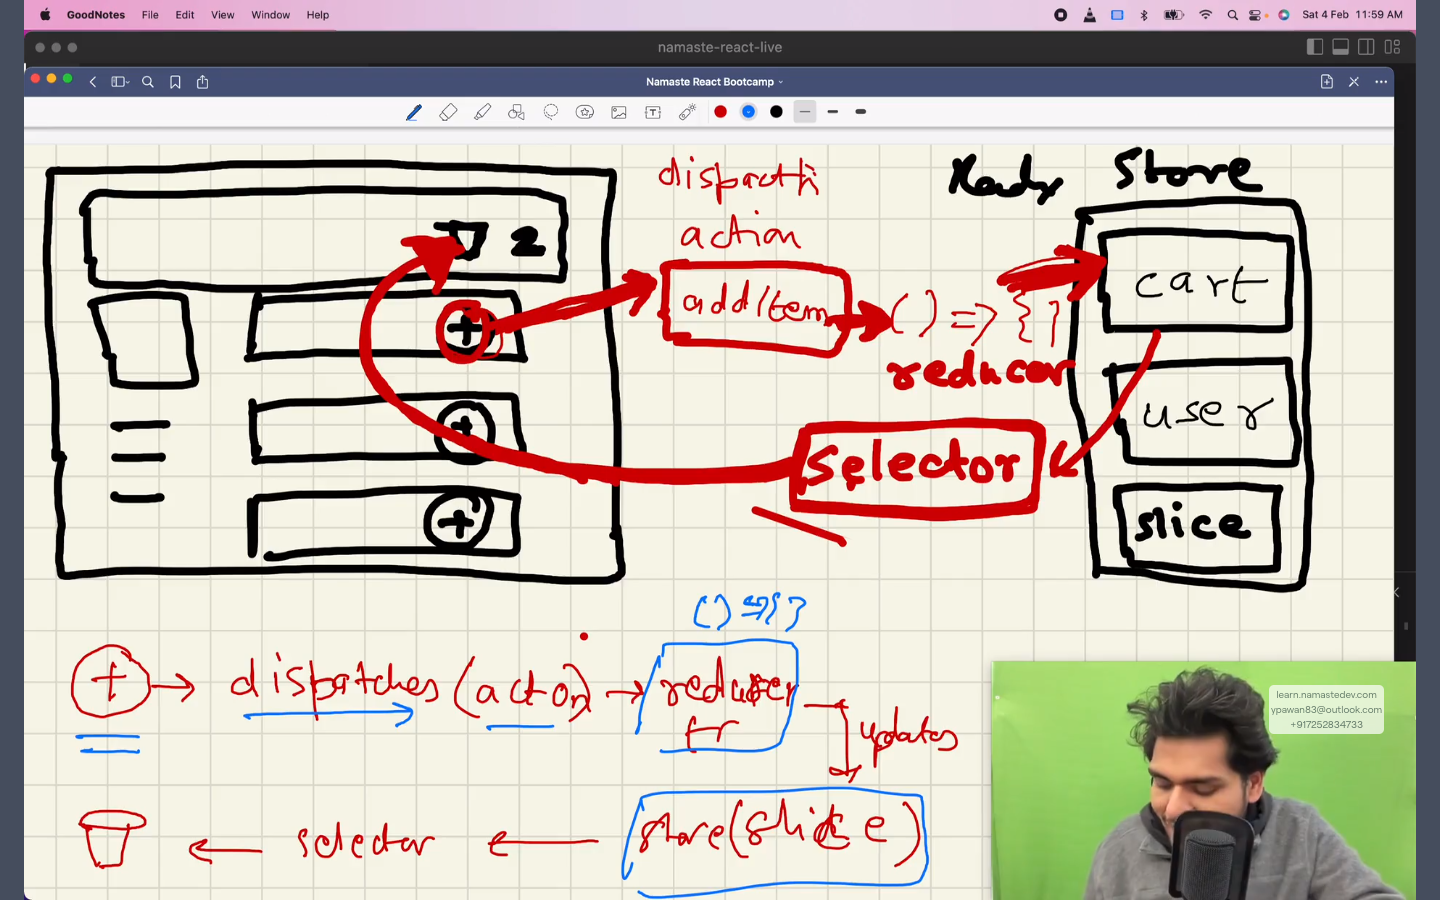 GoodNotes File Edit View Window Help Sat 4 Feb 11:59 AM
namaste-react-live
Namaste React Bootcamp
dispacth
action
Store
2
addItem
() => {}
reducer
cart
user
selector
slice
() => {}
+ → dispatches (action) → reducer
fr
updates
← selector ← store(slice)
learn.namastedev.com
ypawan83@outlook.com
+917252834733